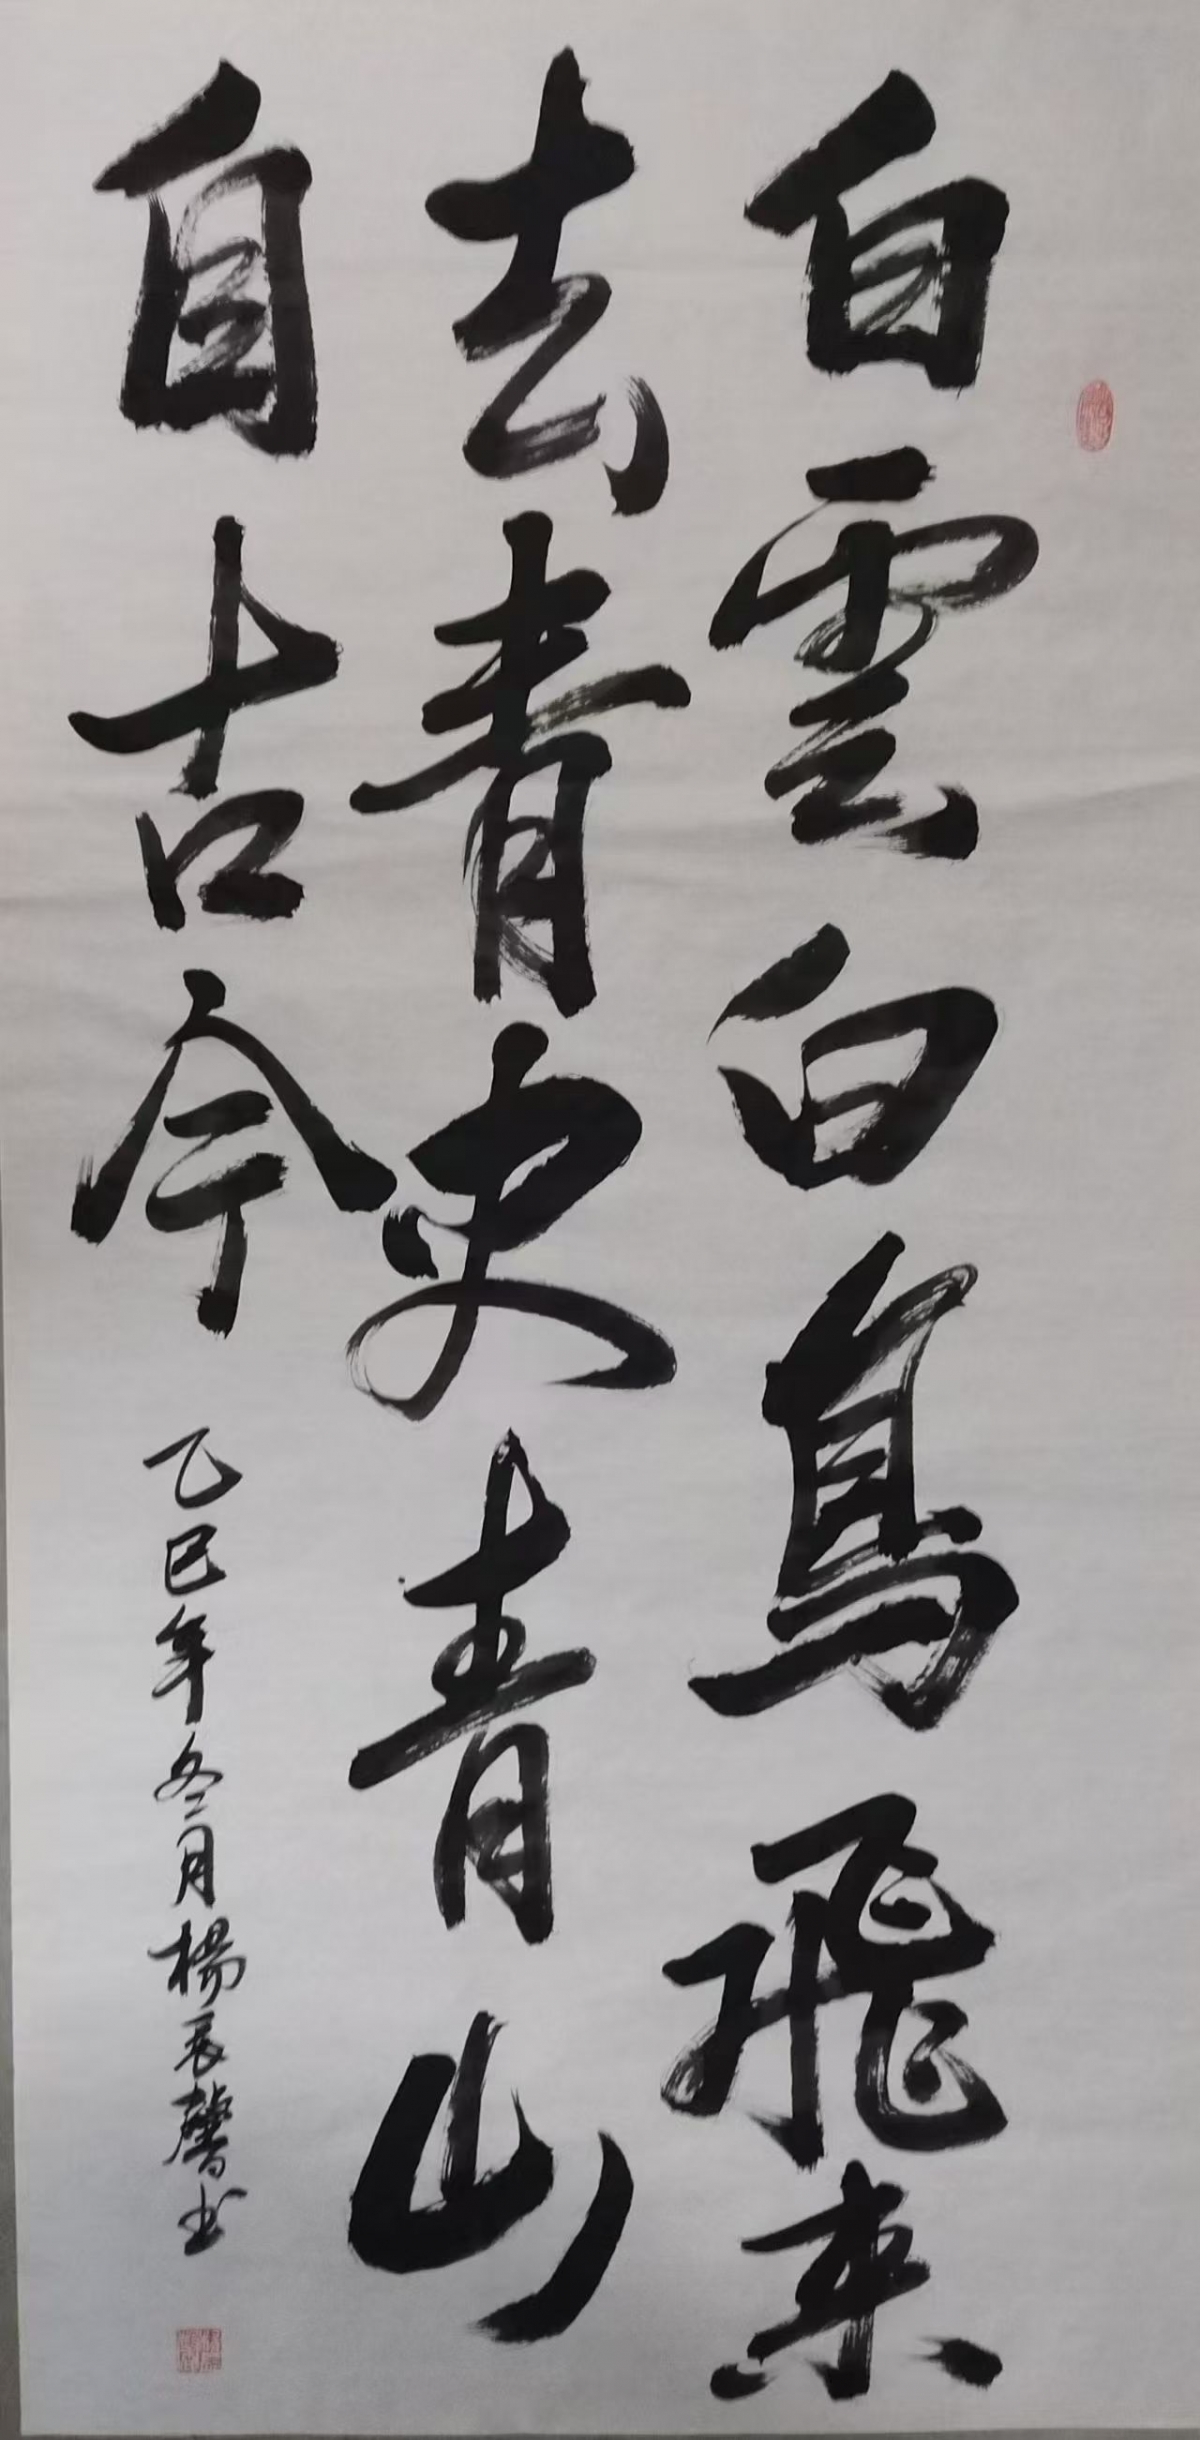 白雲白鳥飛来
去青史青山
自古今
乙巳年冬月楊長馨书